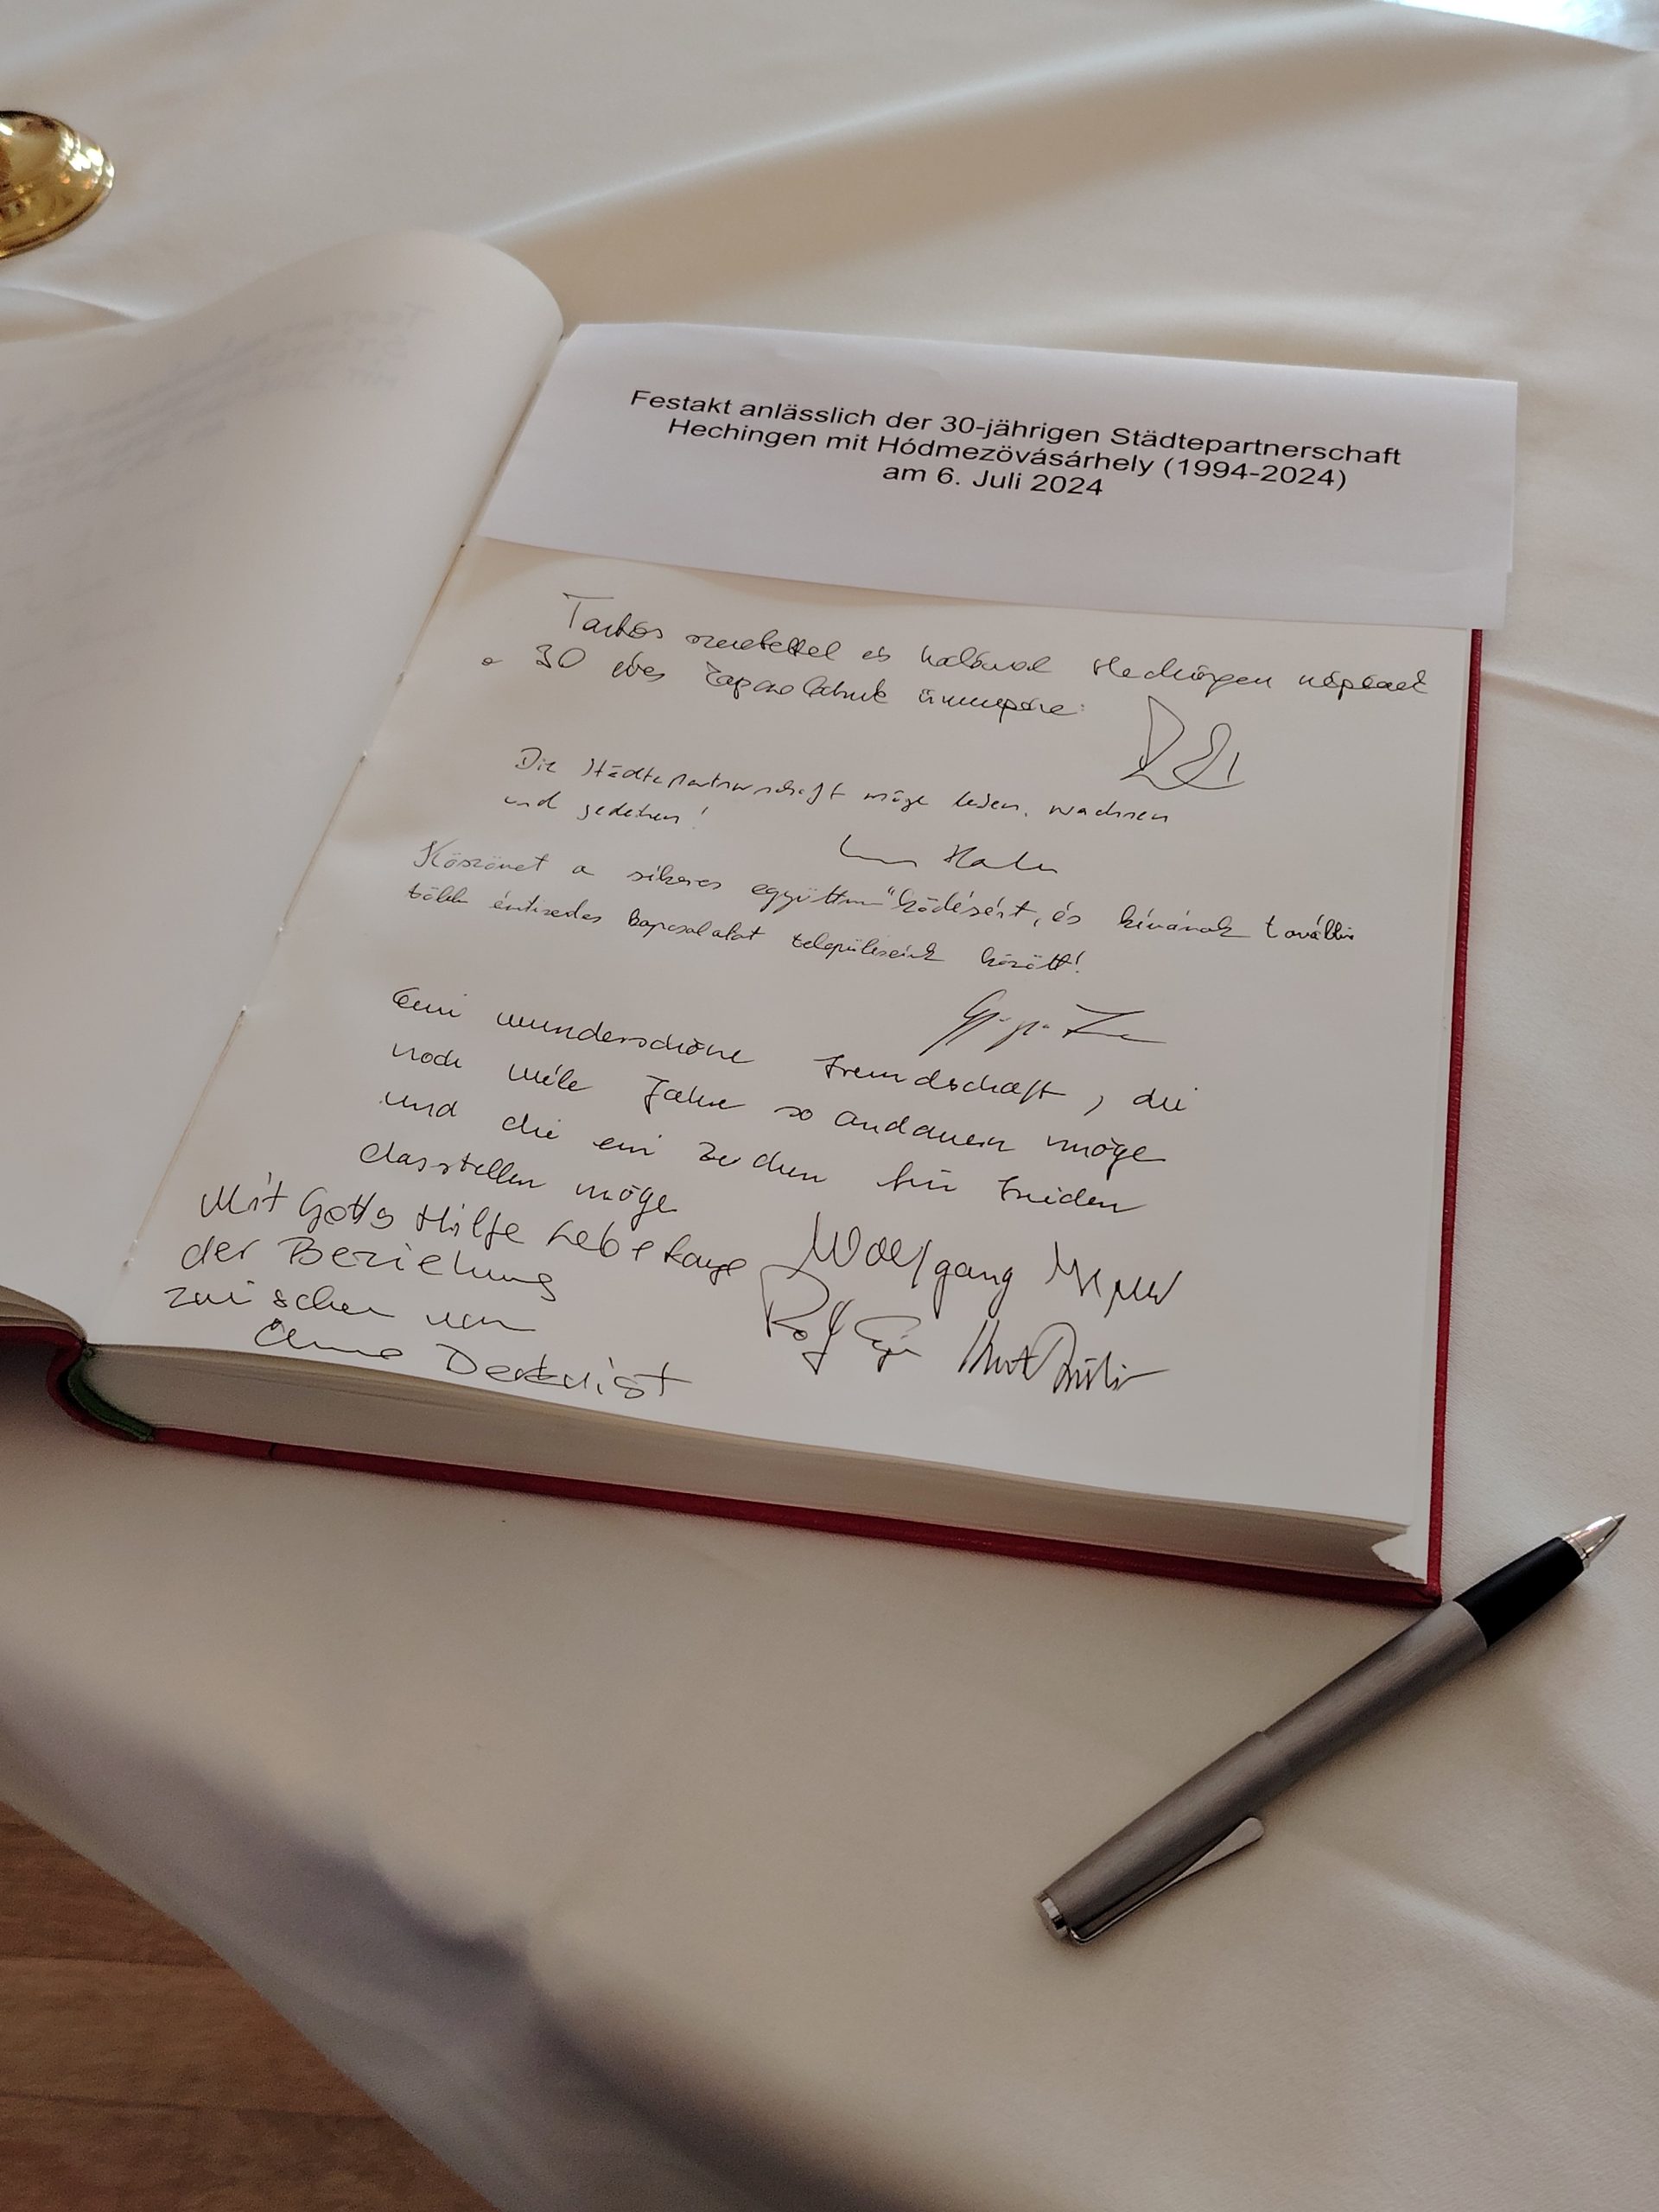 Festakt anlässlich der 30-jährigen Städtepartnerschaft
Hechingen mit Hódmezövásárhely (1994-2024)
am 6. Juli 2024
szeretettel és Hechingen népének
a 30 éves kapcsolatunk ünnepére
Die Städtepartnerschaft möge leben, wachsen
und gedeihen!
Köszönet a sikeres együttműködésért, és kívánok további
több évtizedes kapcsolatot településeink között!
Eine wunderschöne Freundschaft, die
noch viele Jahre so andauern möge
und die ein Zeichen für Frieden
darstellen möge
Mit Gottes Hilfe lebe lange
der Beziehung
zwischen uns
Wolfgang
Rolf